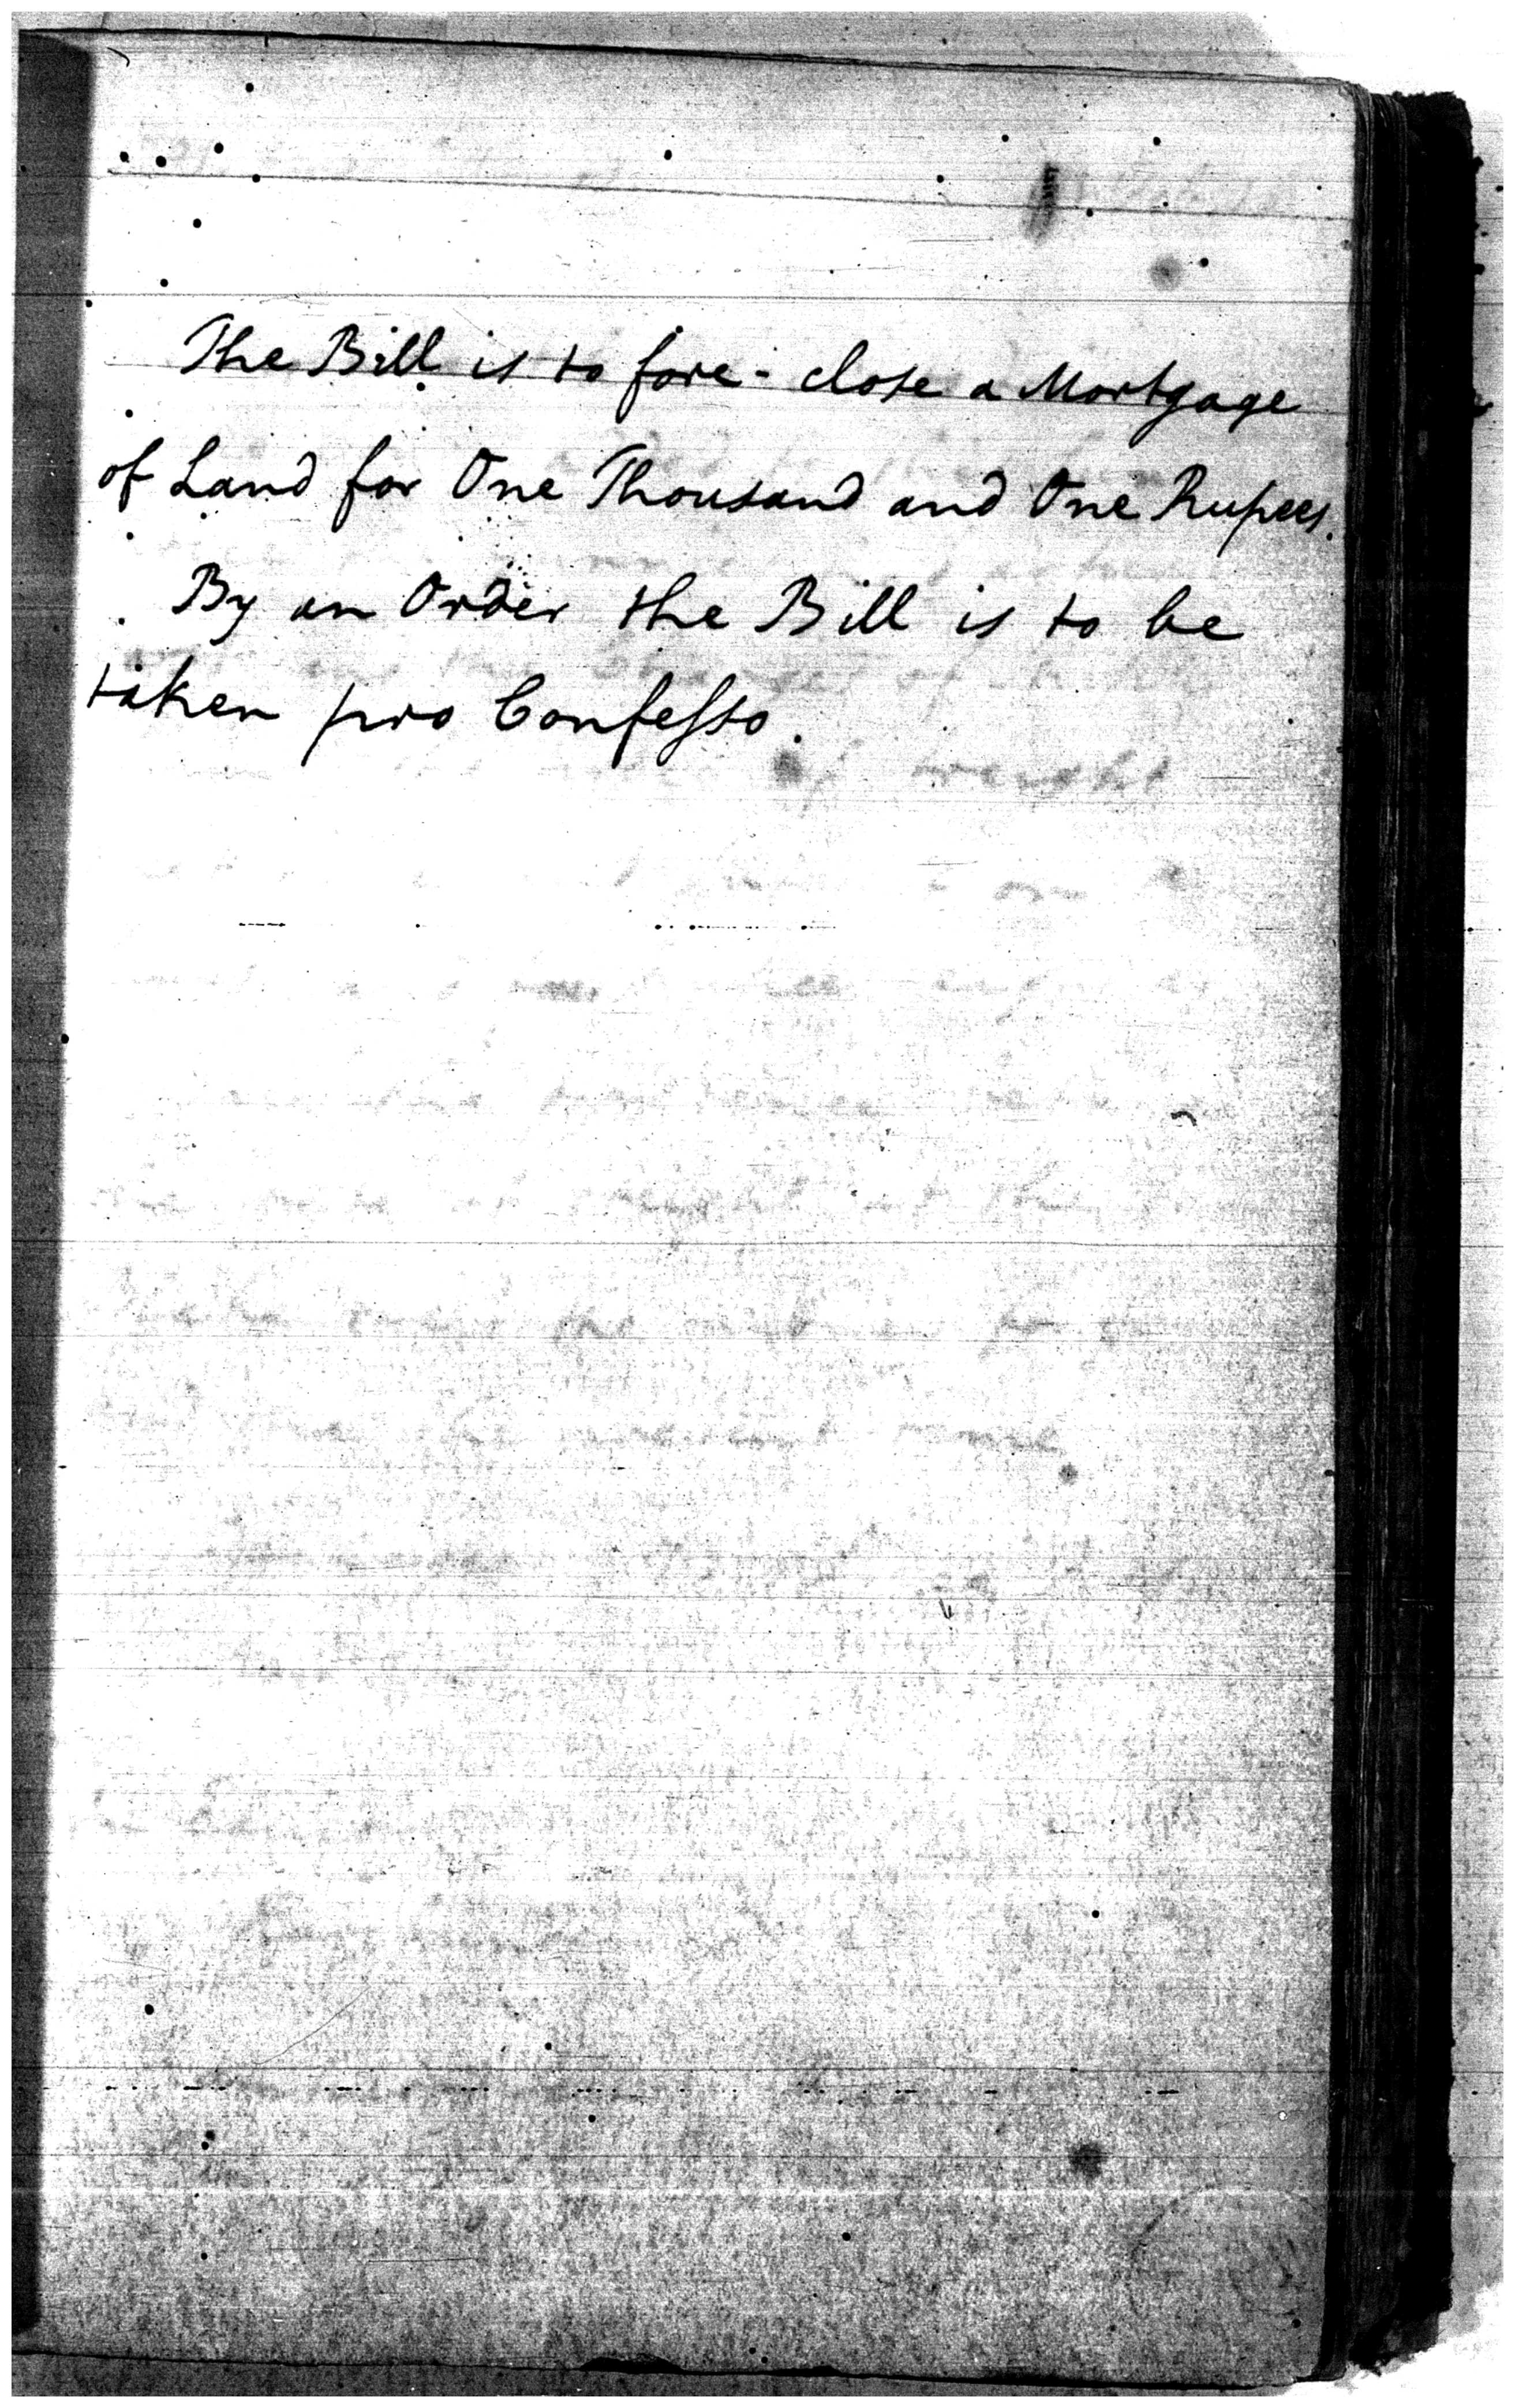 The Bill is to fore-close a Mortgage
of Land for One Thousand and One Rupees.
By an Order the Bill is to be
taken pro Confeſso.